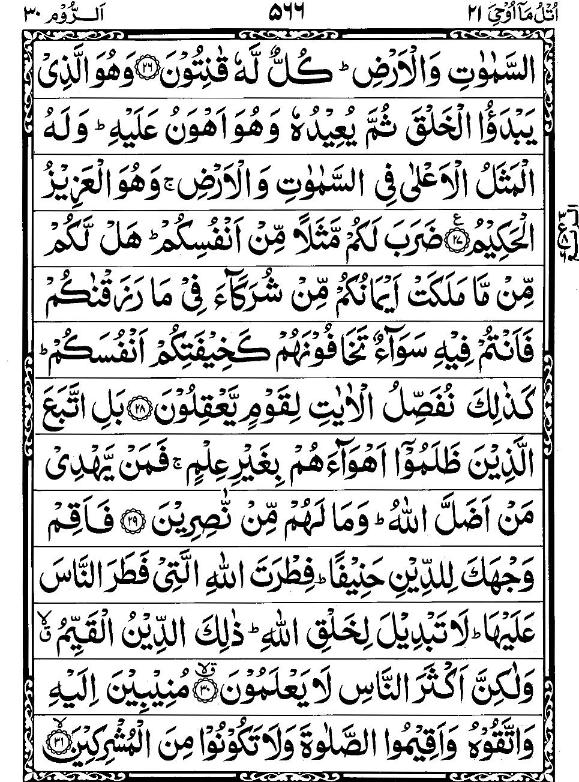 اُتْلُ مَاۤ اُوْحِیَ ۲۱ ۵۶۶ اَلرُّوْم ۳۰
السَّمٰوٰتِ وَالْاَرْضِ ؕ كُلٌّ لَّهٗ قٰنِتُوْنَ ﴿۲۶﴾ وَهُوَ الَّذِیْ
یَبْدَؤُا الْخَلْقَ ثُمَّ یُعِیْدُهٗ وَهُوَ اَهْوَنُ عَلَیْهِ ؕ وَلَهُ
الْمَثَلُ الْاَعْلٰی فِی السَّمٰوٰتِ وَالْاَرْضِ ۚ وَهُوَ الْعَزِیْزُ
الْحَكِیْمُ ﴿۲۷﴾ ع ضَرَبَ لَكُمْ مَّثَلًا مِّنْ اَنْفُسِكُمْ ؕ هَلْ لَّكُمْ
مِّنْ مَّا مَلَكَتْ اَیْمَانُكُمْ مِّنْ شُرَكَآءَ فِیْ مَا رَزَقْنٰكُمْ
فَاَنْتُمْ فِیْهِ سَوَآءٌ تَخَافُوْنَهُمْ كَخِیْفَتِكُمْ اَنْفُسَكُمْ ؕ
كَذٰلِكَ نُفَصِّلُ الْاٰیٰتِ لِقَوْمٍ یَّعْقِلُوْنَ ﴿۲۸﴾ بَلِ اتَّبَعَ
الَّذِیْنَ ظَلَمُوْۤا اَهْوَآءَهُمْ بِغَیْرِ عِلْمٍ ۚ فَمَنْ یَّهْدِیْ
مَنْ اَضَلَّ اللّٰهُ ؕ وَمَا لَهُمْ مِّنْ نّٰصِرِیْنَ ﴿۲۹﴾ فَاَقِمْ
وَجْهَكَ لِلدِّیْنِ حَنِیْفًا ؕ فِطْرَتَ اللّٰهِ الَّتِیْ فَطَرَ النَّاسَ
عَلَیْهَا ؕ لَا تَبْدِیْلَ لِخَلْقِ اللّٰهِ ؕ ذٰلِكَ الدِّیْنُ الْقَیِّمُ ۙق
وَلٰكِنَّ اَكْثَرَ النَّاسِ لَا یَعْلَمُوْنَ ﴿۳۰﴾ ۙق مُنِیْبِیْنَ اِلَیْهِ
وَاتَّقُوْهُ وَاَقِیْمُوا الصَّلٰوةَ وَلَا تَكُوْنُوْا مِنَ الْمُشْرِكِیْنَ ﴿۳۱﴾ ۙ